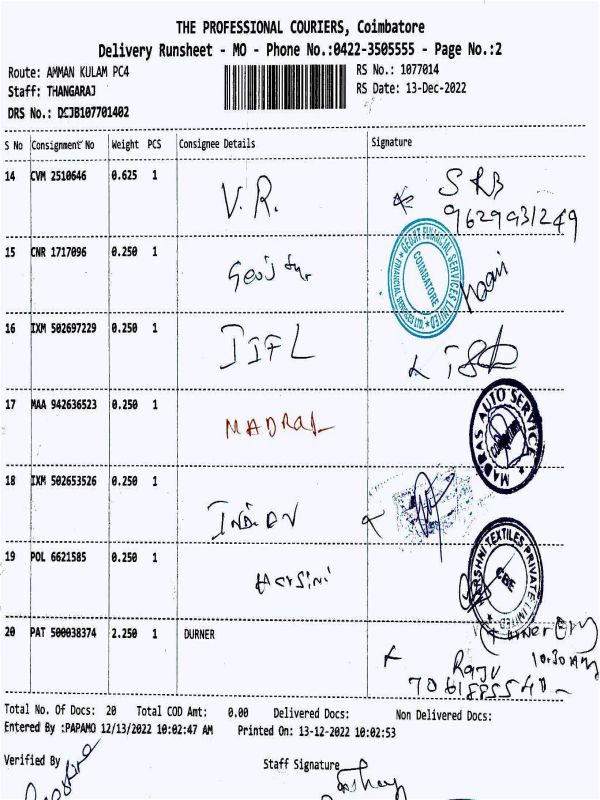 THE PROFESSIONAL COURIERS, Coimbatore
Delivery Runsheet - MO - Phone No.:0422-3505555 - Page No.:2
Route: AMMAN KULAM PC4 RS No.: 1077014
Staff: THANGARAJ RS Date: 13-Dec-2022
DRS No.: DSJB107701402
S No Consignment No Weight PCS Consignee Details Signature
14 CVM 2510646 0.625 1 V.R. SRB
9629931249
15 CNR 1717096 0.250 1
GEOJIT FINANCIAL SERVICES LIMITED
COIMBATORE
16 IXM 502697229 0.250 1 IIFL
17 MAA 942636523 0.250 1 MADRAS
MADRAS AUTO SERVICE
18 IXM 502653526 0.250 1 INDIAN
19 POL 6621585 0.250 1 Harsini
HARSHNI TEXTILES PRIVATE LIMITED
CBE
20 PAT 500038374 2.250 1 DURNER
10:30AM
Raju
Total No. Of Docs: 20 Total COD Amt: 0.00 Delivered Docs: Non Delivered Docs:
Entered By :PAPAMO 12/13/2022 10:02:47 AM Printed On: 13-12-2022 10:02:53
Verified By Staff Signature